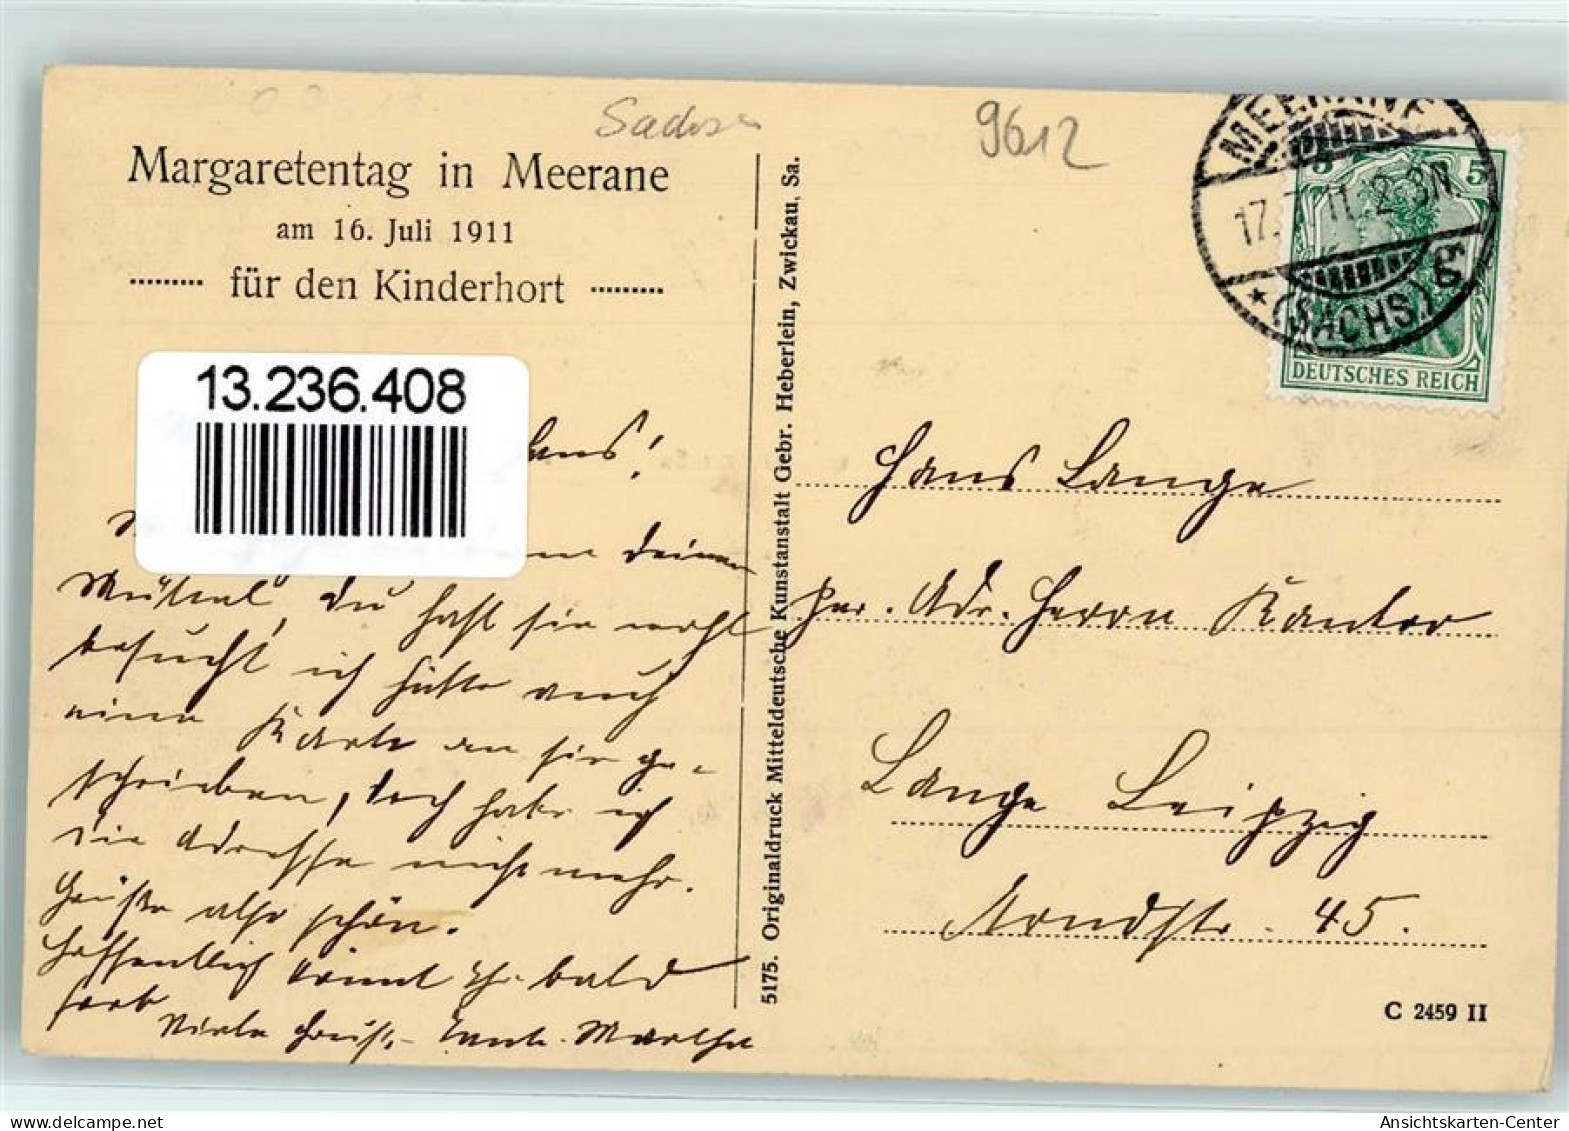 Sachsen
9612
Margaretentag in Meerane
am 16. Juli 1911
für den Kinderhort
13.236.408
MEERANE
17.7.11. 2-3N.
* (SACHS.) c
5 5
DEUTSCHES REICH
Hans!
Deinen
, Du hast sie wohl
besucht ich hätte auch
eine Karte an sie ge-
schrieben, doch habe ich
die Adresse nicht mehr.
Grüße also schön.
Hoffentlich könnt Ihr bald
fort
Viele Grüße, Tante Marthe
5175. Originaldruck Mitteldeutsche Kunstanstalt Gebr. Heberlein, Zwickau, Sa.
Hans Lange
per. Adr. Herrn Kantor
Lange Leipzig
Mondstr. 45.
C 2459 II
delcampe.net
Ansichtskarten-Center